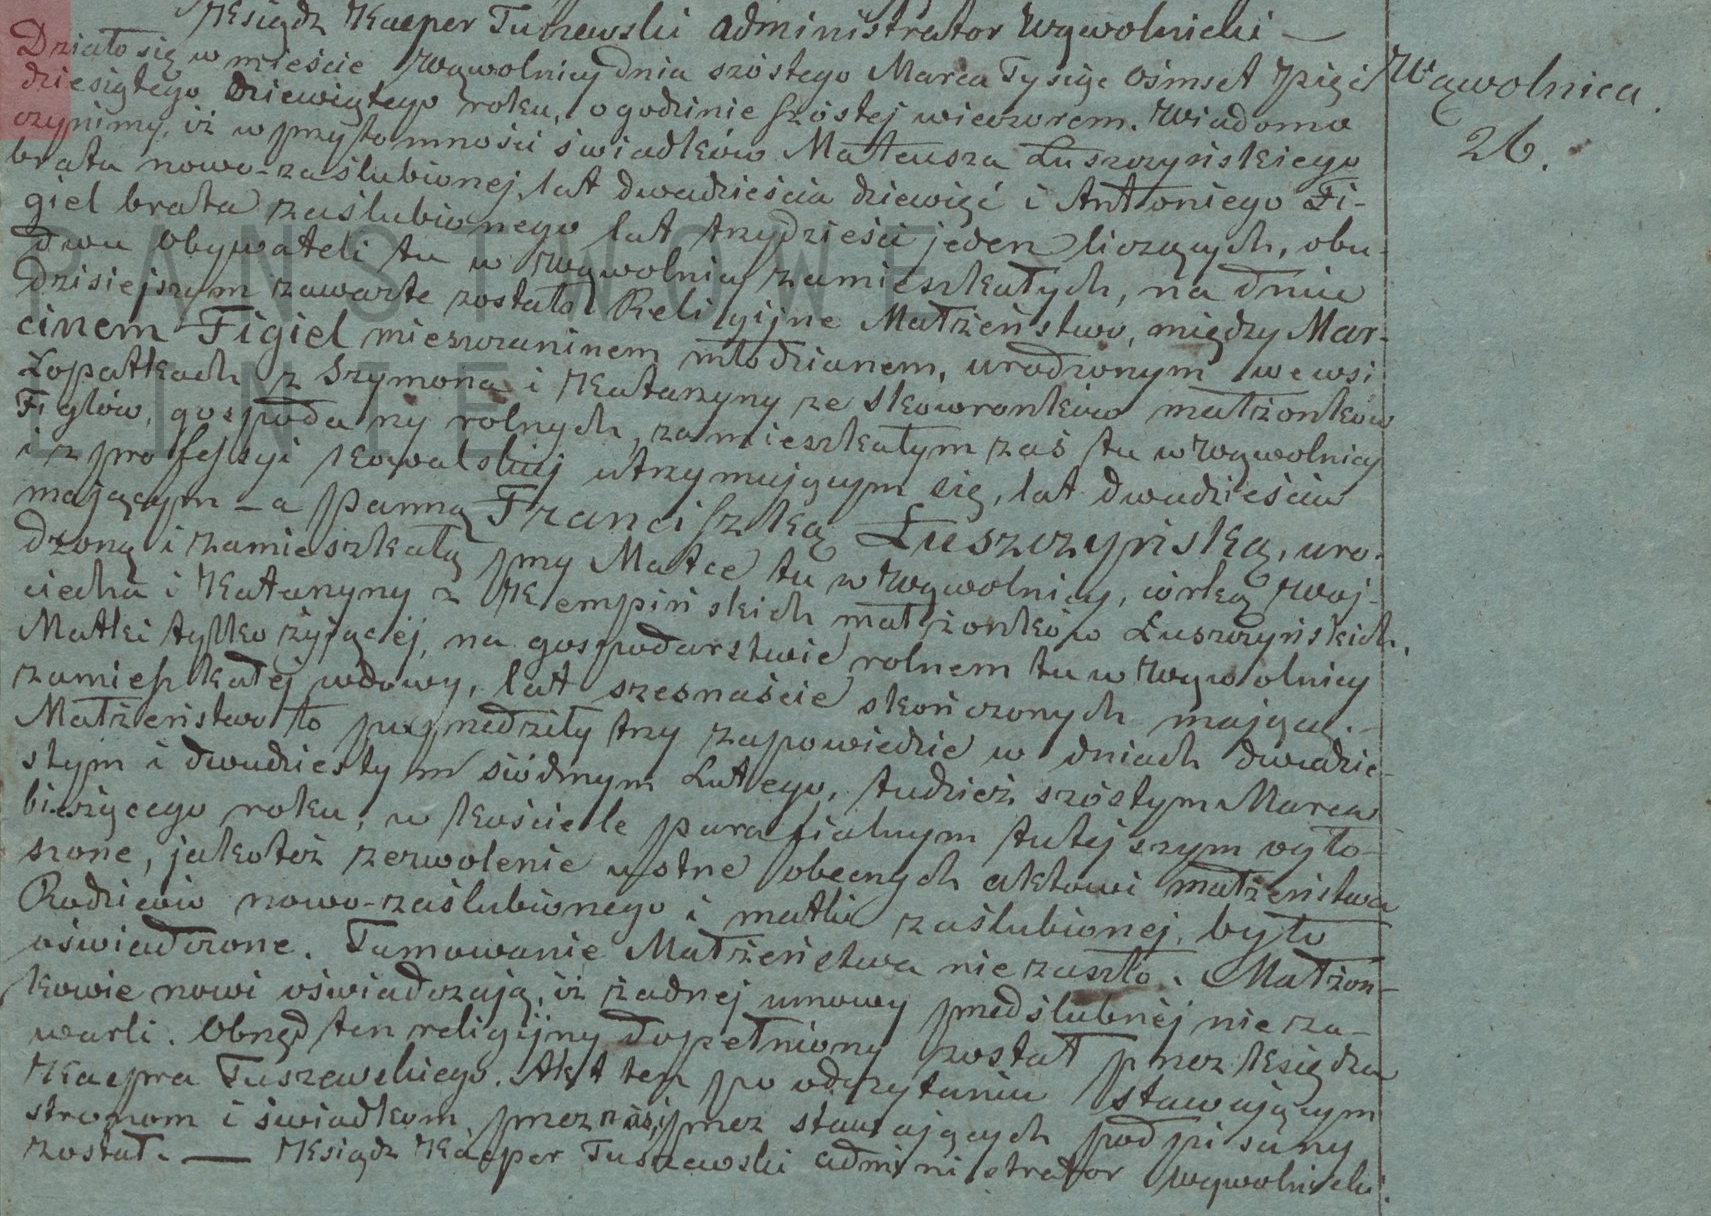 Ksiądz Kacper Tuszewski administrator Wąwolnicki —
Działo się w mieście Wąwolnicy dnia szóstego Marca Tysiąc ośmset pięć
dziesiątego dziewiątego roku, o godzinie szóstej wieczorem. Wiadomo
czynimy, iż w przytomności świadków Mateusza Łuszczyńskiego
brata nowo-zaślubionej, lat dwadzieścia dziewięć i Antoniego Fi-
giel brata zaślubionego lat trzydzieści jeden liczących, obu-
dwu Obywateli tu w Wąwolnicy zamieszkałych, na dniu
dzisiejszym zawarte zostało Religijne Małżeństwo, między Mar-
cinem Figiel mieszczaninem młodzianem, urodzonym we wsi
Łopatkach z Szymona i Katarzyny ze Skowronków małżonków
Figlów, gospodarzy rolnych, zamieszkałym zaś tu w Wąwolnicy
i z professyi kowalskiej utrzymującym się, lat dwadzieścia
mającym – a Panną Franciszką Łuszczyńską, uro-
dzoną i zamieszkałą przy Matce tu w Wąwolnicy, córką Woj-
ciecha i Katarzyny z Kempińskich małżonków Łuszczyńskich,
Matki tylko żyjącej, na gospodarstwie rolnem tu w Wąwolnicy
zamieszkałej wdowy, lat szesnaście skończonych mającą. –
Małżeństwo to poprzedziły trzy zapowiedzie w dniach dwudzie-
stym i dwudziestym siódmym Lutego, tudzież szóstym Marca
bieżącego roku, w kościele parafialnym tutejszym ogło-
szone, jakoteż zezwolenie ustne obecnych aktowi małżeństwa
Rodziców nowo-zaślubionego i matki zaślubionej, było
oświadczone. Tamowanie Małżeństwa nie zaszło. Małżon-
kowie nowi oświadczają, iż żadnej umowy przedślubnej nie za-
warli. Obrzęd ten religijny dopełniony został przez Księdza
Kacpra Tuszewskiego. Akt ten po odczytaniu stawającym
stronom i świadkom, przez nas i przez stawających podpisany
został. — Ksiądz Kacper Tuszewski administrator Wąwolnicki.
Wąwolnica.
26.
PAŃSTWOWE